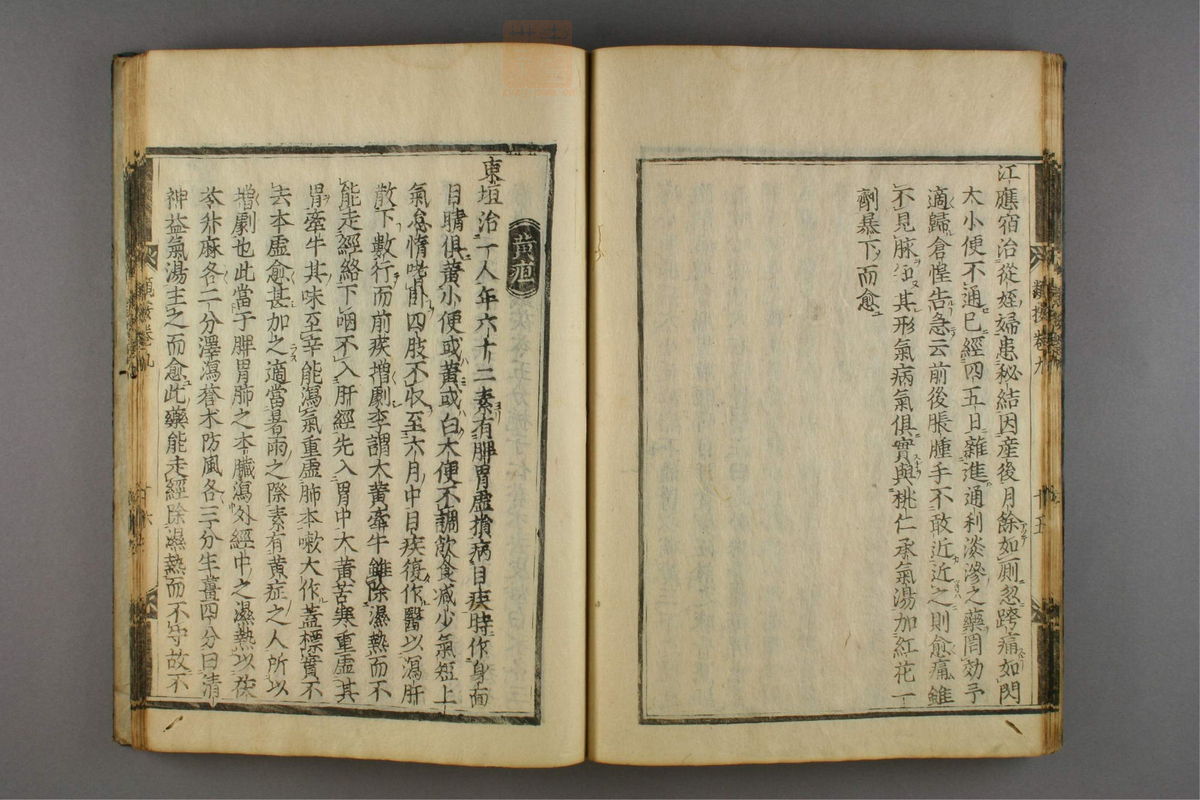 江應宿治從姪婦患秘結因産後月餘如厠忽跨痛如閃
大小便不通已經四五日雜進通利淡滲之藥罔効予
適歸倉惶告急云前後脹腫手不敢近近之則愈痛雖
不見脉 其形氣病氣俱實與桃仁承氣湯加紅花一
劑暴下而愈
黄疸
東垣治一人年六十二素有脾胃虛損病目疾時作身面
目睛俱黄小便或黄或白大便不調飲食减少氣短上
氣怠惰嗜臥四肢不収至六月中目疾復作醫以瀉肝
散下數行而前疾增劇李謂大黄牽牛雖除濕熱而不
能走經絡下咽不入肝經先入胃中大黄苦寒重虛其
胃牽牛其味至辛能瀉氣重虛肺本嗽大作蓋標實不
去本虛愈甚加之適當暑雨之際素有黄症之人所以
增劇也此當于脾胃肺之本臟瀉外經中之濕熱以茯
苓升麻各二分澤瀉蒼朮防風各三分生薑四分曰清
神益氣湯主之而愈此藥能走經除濕熱而不守故不